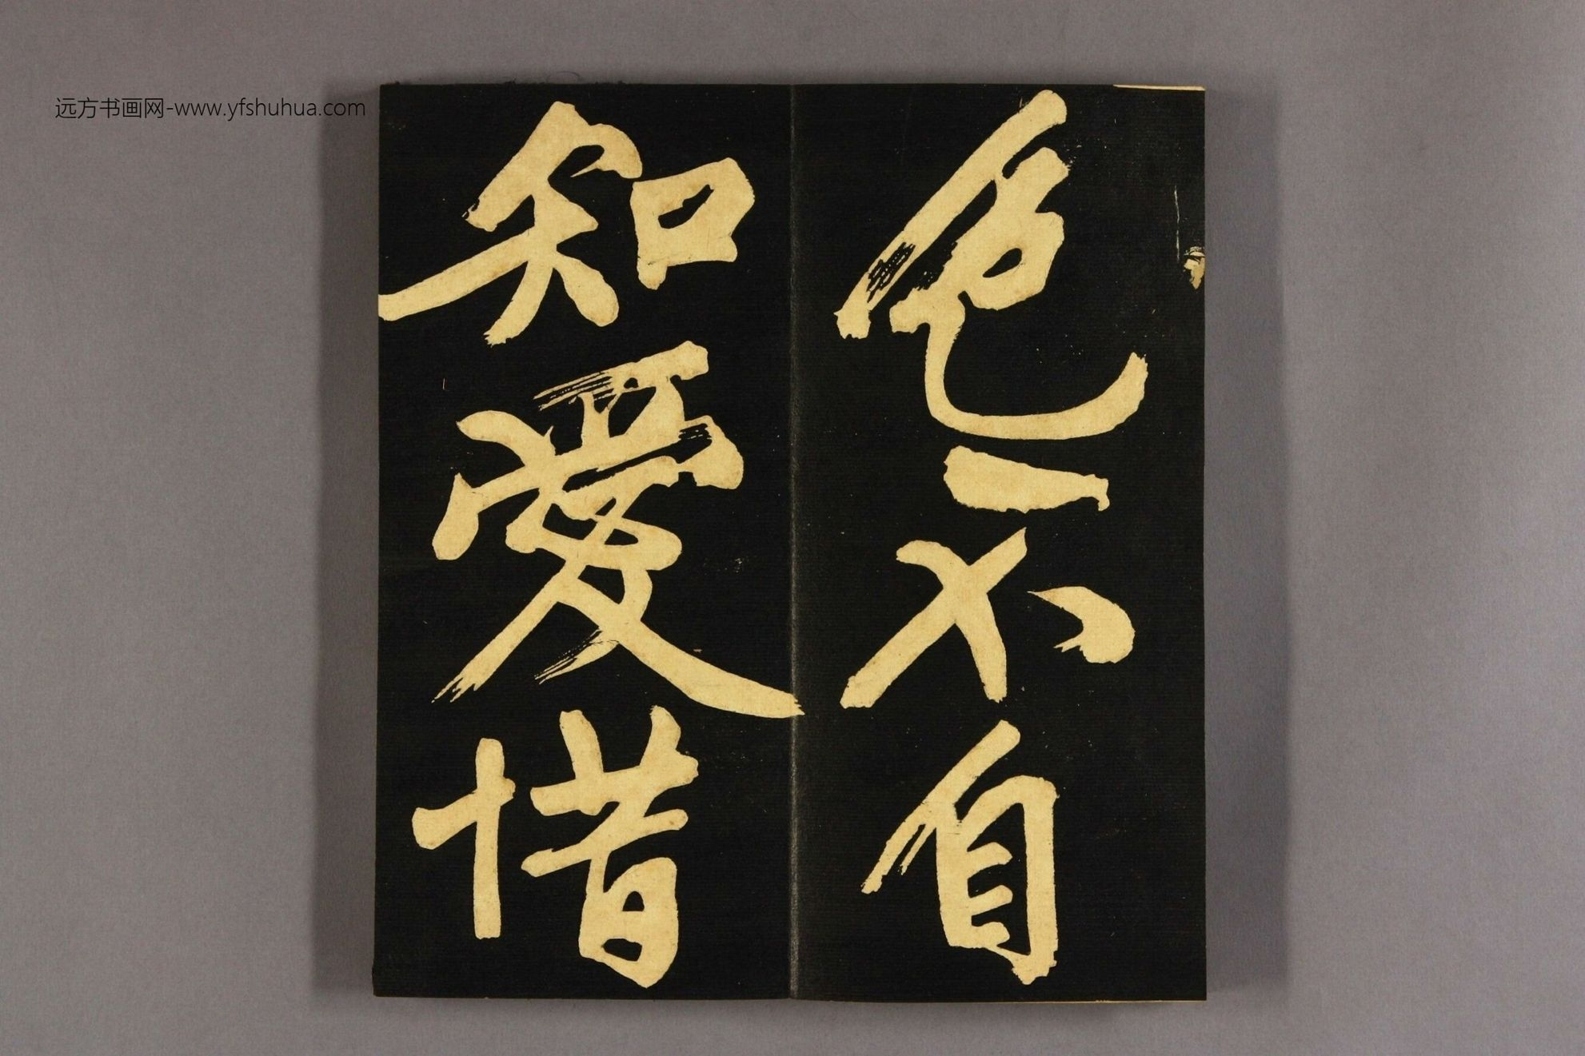 远方书画网-www.yfshuhua.com
色不自
知愛惜